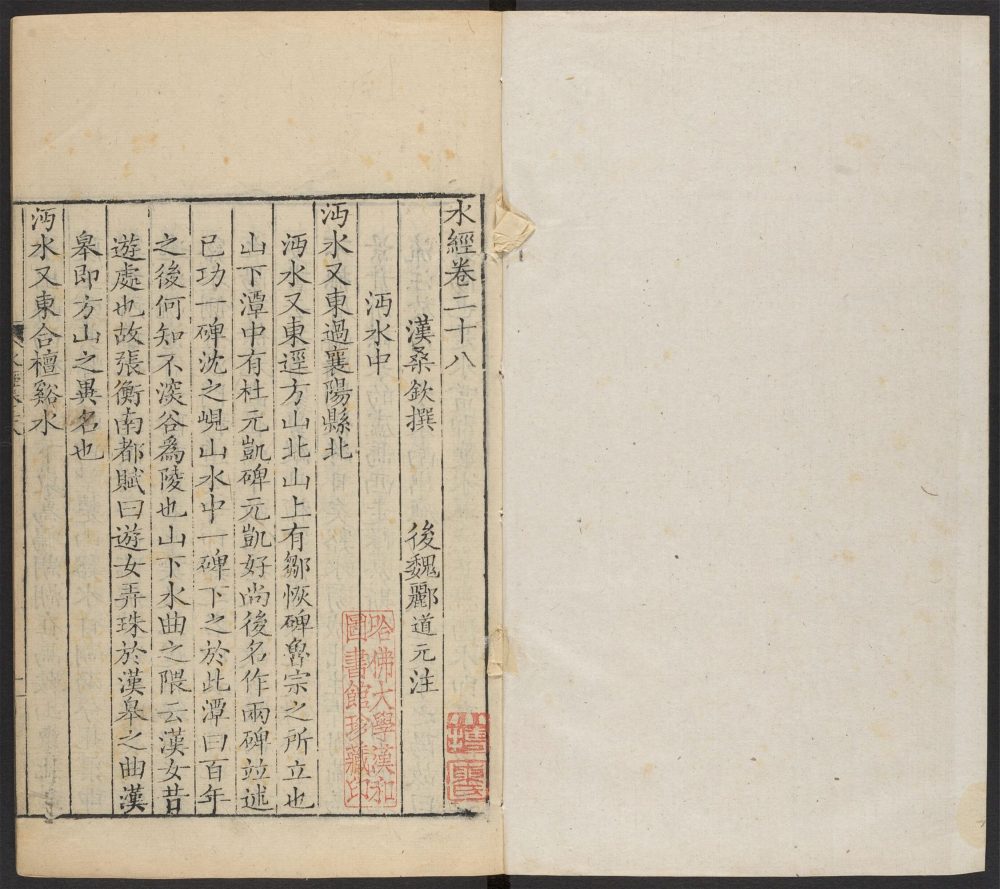 水經卷二十八
漢桑欽撰　後魏酈道元注
沔水中
沔水又東過襄陽縣北
沔水又東逕方山北山上有鄒恢碑魯宗之所立也
山下潭中有杜元凱碑元凱好尚後名作兩碑竝述
已功一碑沈之峴山水中一碑下之於此潭曰百年
之後何知不深谷爲陵也山下水曲之隈云漢女昔
遊處也故張衡南都賦曰遊女弄珠於漢皋之曲漢
皋即方山之異名也
沔水又東合檀谿水
哈佛大學漢和
圖書館珍藏印